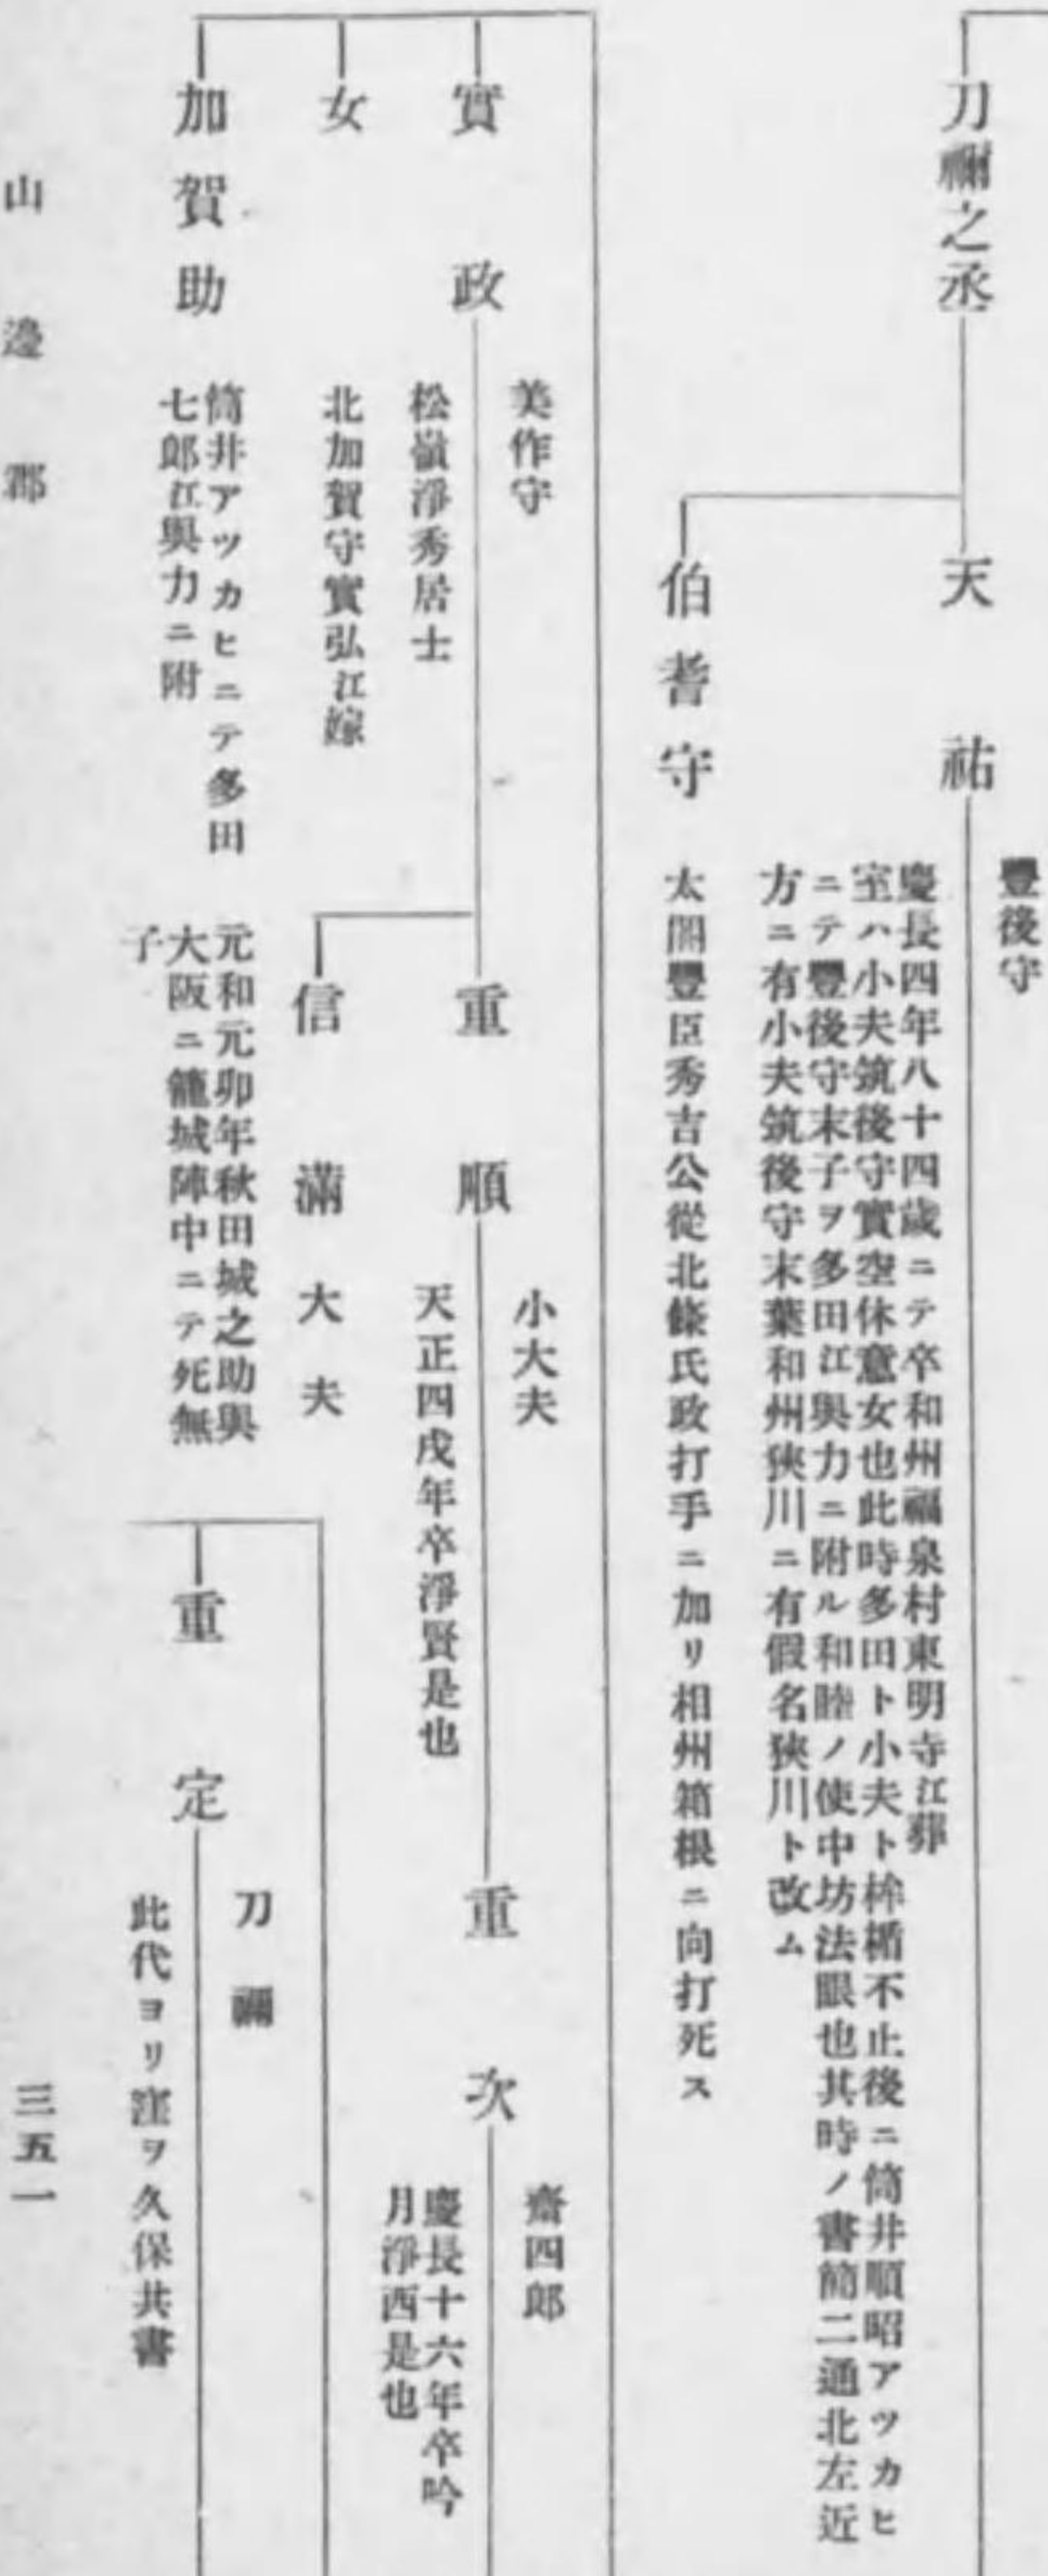 刀禰之丞
天祐
豐後守
慶長四年八十四歲ニテ卒和州福泉村東明寺江葬
室ハ小夫筑後守實空休意女也此時多田ト小夫ト桙楯不止後ニ筒井順昭アツカヒ
ニテ豐後守末子ヲ多田江與力ニ附ル和睦ノ使中坊法眼也其時ノ書簡二通北左近
方ニ有小夫筑後守末葉和州狹川ニ有假名狹川ト改ム
伯耆守
太閤豐臣秀吉公從北條氏政打手ニ加リ相州箱根ニ向打死ス
實政
美作守
松嶺淨秀居士
重順
小大夫
天正四戌年卒淨賢是也
重次
齋四郎
慶長十六年卒吟
月淨西是也
信滿
大夫
元和元卯年秋田城之助與
大阪ニ籠城陣中ニテ死無
子
女
北加賀守實弘江嫁
加賀助
筒井アツカヒニテ多田
七郎江與力ニ附
重定
刀禰
此代ヨリ窪ヲ久保共書
山邊郡
三五一